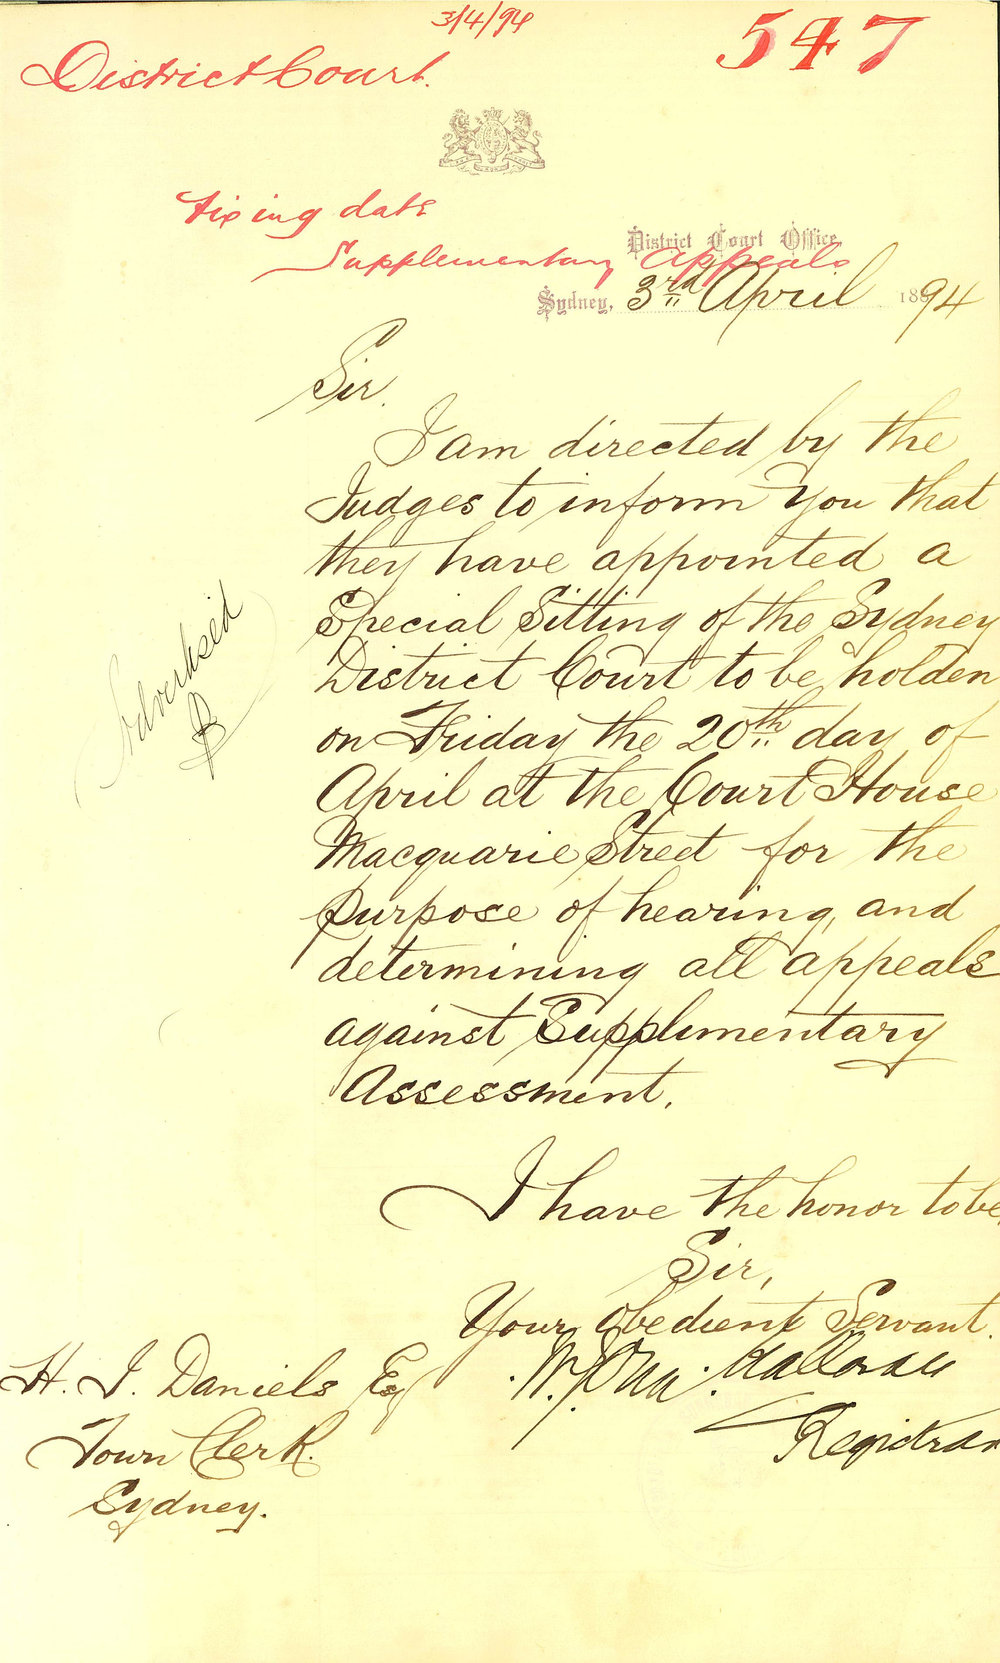 3/4/94
547
District Court.
Fixing date
Supplementary Appeals
District Court Office
Sydney, 3rd April 1894
Sir.
I am directed by the
Judges to inform You that
they have appointed a
Special Sitting of the Sydney
District Court to be holden
on Friday the 20th day of
April at the Court House
Macquarie Street for the
purpose of hearing, and
determining all appeals
against Supplimentary
Assessment.
Advertised
I have the honor to be,
Sir,
Your obedient Servant.
Registrar
H. J. Daniels Esq
Town Clerk.
Sydney.